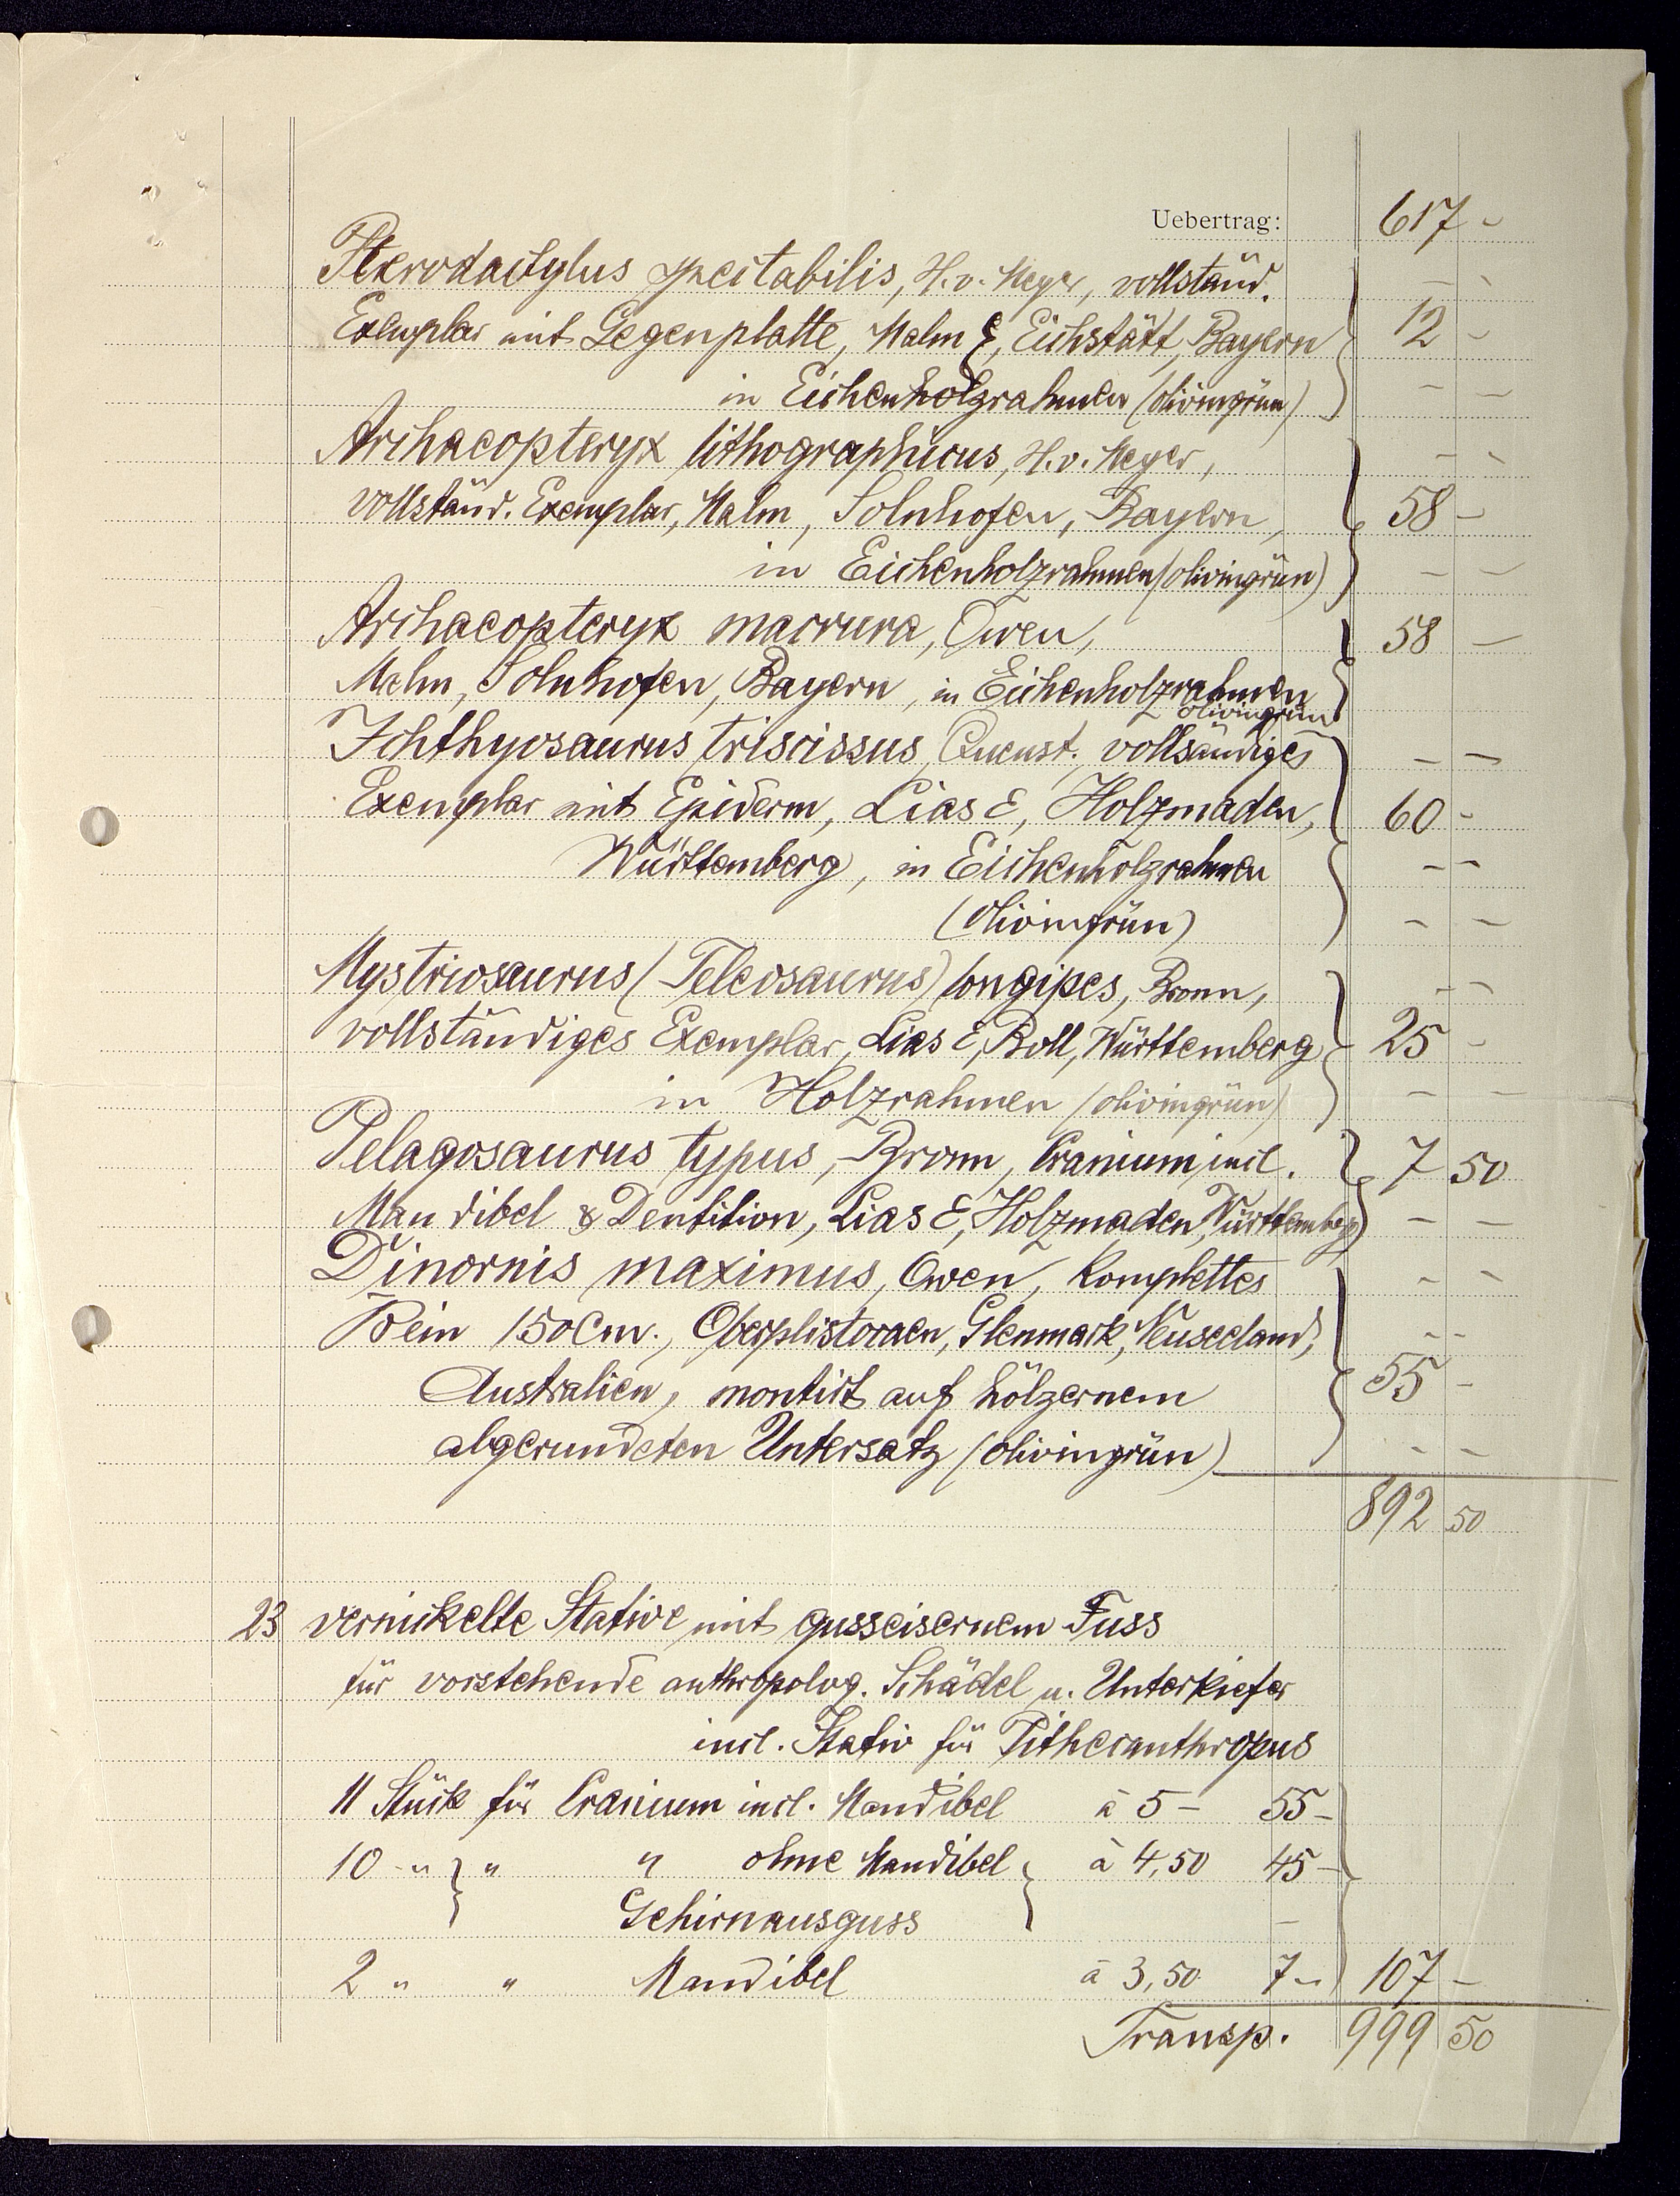 Uebertrag: 617 -
Pterodactylus spectabilis, H. v. Meyer, vollständ.
Exemplar mit Gegenplatte, Malm ξ, Eichstätt, Bayern 12 -
in Eichenholzrahmen (olivingrün)
Archaeopteryx lithographicus, H. v. Meyer,
vollständ. Exemplar, Malm, Solnhofen, Bayern, 58 -
in Eichenholzrahmen (olivingrün)
Archaeopteryx macrura, Owen, 58 -
Malm, Solnhofen, Bayern, in Eichenholzrahmen
olivingrün
Ichthyosaurus triscissus, Quenst. vollsändiges
Exemplar mit Epiderm, Lias Ɛ, Holzmaden, 60 -
Württemberg, in Eichenholzrahmen
(olivingrün)
Mystriosaurus (Teleosaurus) longipes, Bronn,
vollständiges Exemplar, Lias Ɛ, Boll, Württemberg 25 -
in Holzrahmen (olivingrün)
Pelagosaurus typus, Bronn, Cranium incl. 7 50
Mandibel & Dentition, Lias Ɛ, Holzmaden, Württemberg
Dinornis maximus, Owen, komplettes
Bein 150 cm., Oberplistocaen, Glenmark, Neuseeland,
Australien, montirt auf hölzernem 55 -
abgerundeten Untersatz (olivingrün)
892 50
23 vernickelte Stative mit gusseisernem Fuss
für vorstehende anthropolog. Schädel u. Unterkiefer
incl. Stativ für Pithecanthropus
11 Stück für Cranium incl. Mandibel à 5 - 55 -
10 " " " ohne Mandibel à 4,50 45 -
Gehirnausguss
2 " " Mandibel à 3,50 7 - 107 -
Transp. 999 50